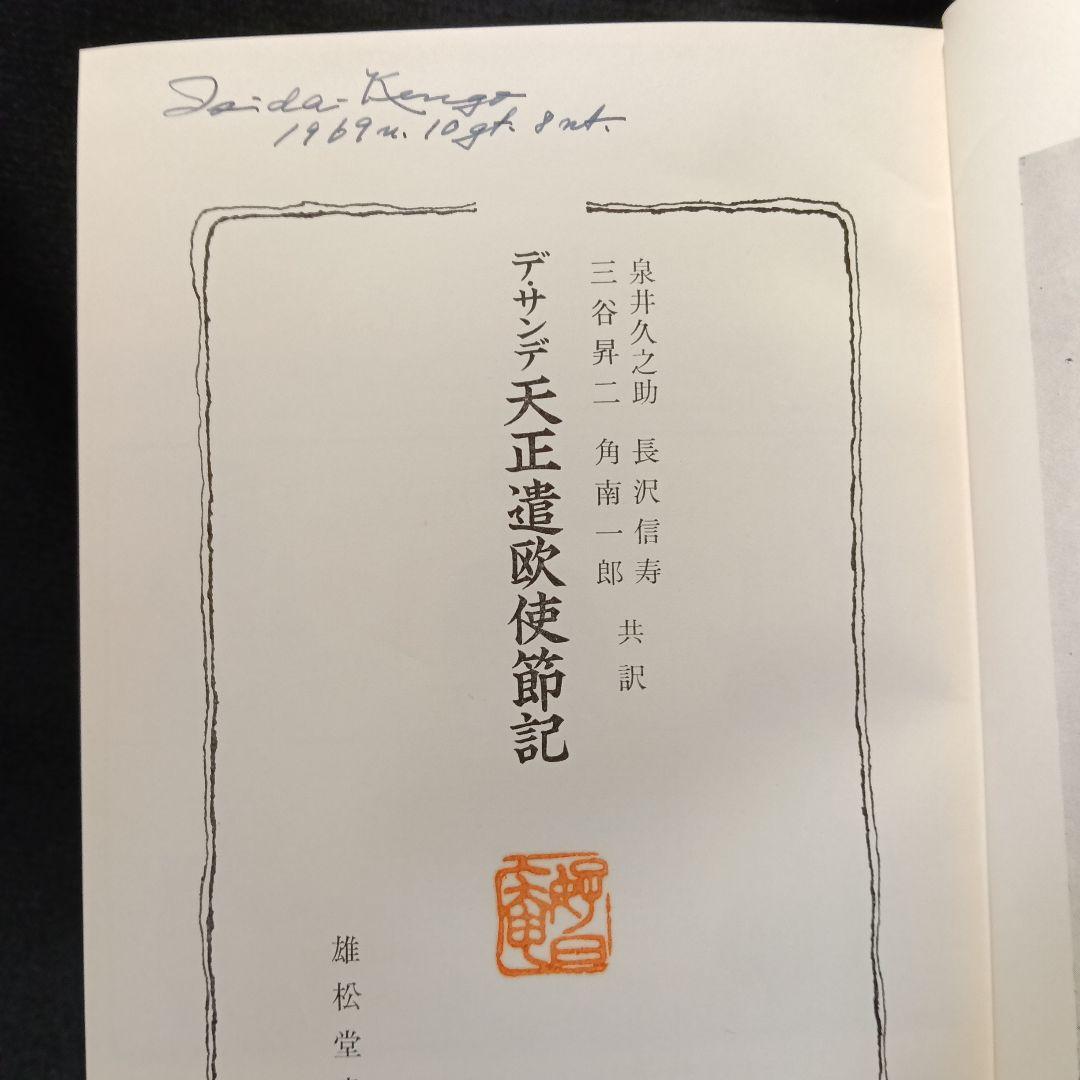 Kengo
1969n. 10gt. 8nt.
泉井久之助 長沢信寿
三谷昇二 角南一郎
共訳
デ・サンデ天正遣欧使節記
好日
庵
雄松堂